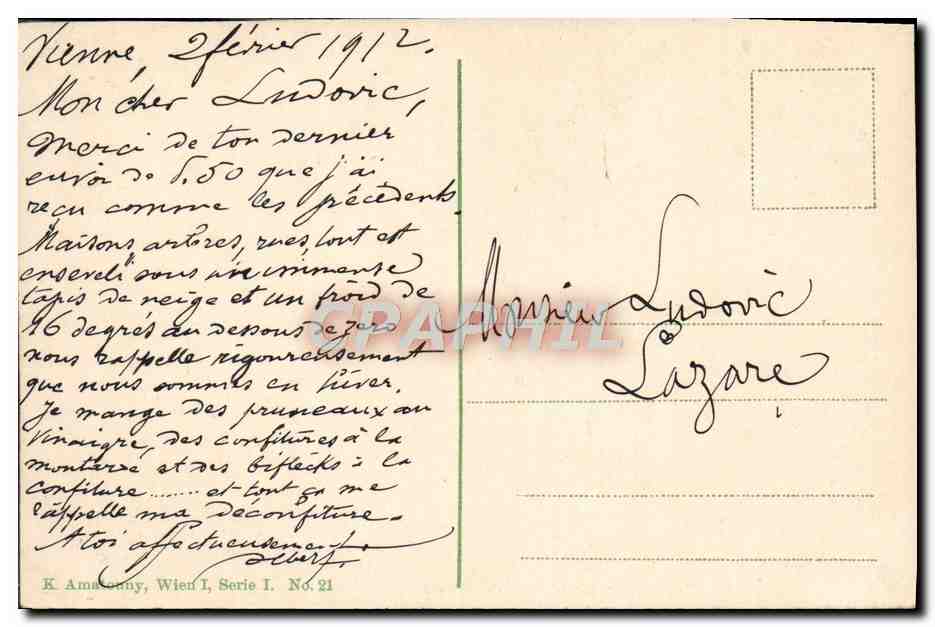 Vienne, 2 février 1912.
Mon cher Ludovic,
Merci de ton dernier
envoi de 5.50 que j'ai
reçu comme les précédents.
Maisons, arbres, rues, tout est
enseveli sous un immense
tapis de neige et un froid de
16 degrés au dessous de zero
nous rappelle rigoureusement
que nous sommes en hiver.
Je mange des pruneaux au
vinaigre, des confitures à la
moutarde et des biftecks à la
confiture ........ et tout ça me
rappelle ma déconfiture.
A toi affectueusement.
Albert.
K. Amatouny, Wien I, Serie I. No. 21
CPAPHIL
Monsieur Ludovic
Lazare